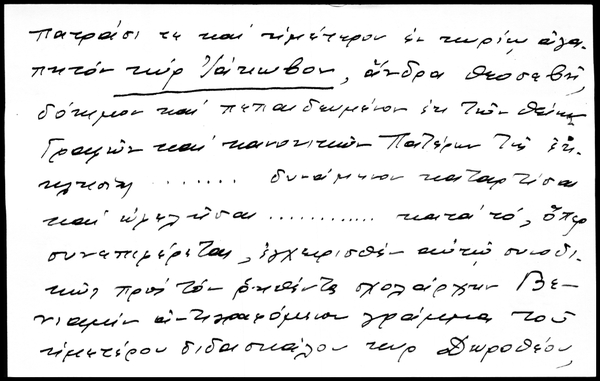 πατράσι τε καὶ ἡμέτερον ἐν κυρίῳ ἀγα-
πητόν κύρ Ἰάκωβον, ἄνδρα θεοσεβῆ,
δόκιμον καὶ πεπαιδευμένον ἐκ τῶν θείων
Γραφῶν καὶ κανονικῶν Πατέρων τῆς ἐκ-
κλησίας ........ δυνάμενον καταρτίσαι
καὶ ὠφελῆσαι ............ κατὰ τό, ὅπερ
συνεπιφέρεται, ἐγχειρισθέν αὐτῷ συνοδι-
κῶς πρός τόν ῥηθέντα σχολάρχην Βε-
νιαμίν ἀντιγραφόμενον γράμμα τοῦ
ἡμετέρου διδασκάλου κυρ Δωροθέου,